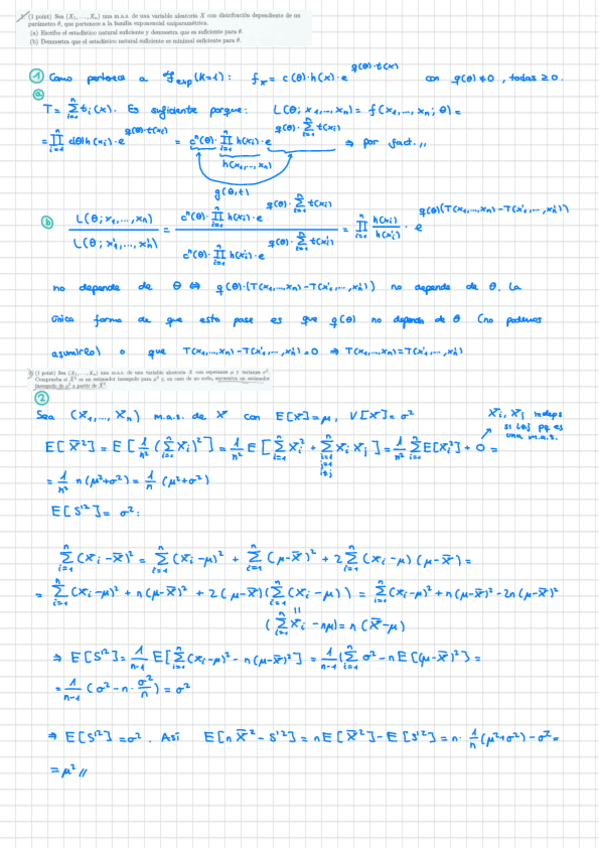 1. (1 point) Sea (X₁, ..., Xₙ) una m.a.s. de una variable aleatoria X con distribución dependiente de un
parámetro θ, que pertenece a la familia exponencial uniparamétrica.
(a) Escribe el estadístico natural suficiente y demuestra que es suficiente para θ.
(b) Demuestra que el estadístico natural suficiente es minimal suficiente para θ.
① Como pertenece a 𝓕exp(K=1): fₓ = c(θ)·h(x)·e^{q(θ)·t(x)} con q(θ)≠0, todas ≥0.
ⓐ T = Σᵢ₌₁ⁿ tᵢ(x). Es suficiente porque: L(θ; x₁,...,xₙ) = f(x₁,...,xₙ; θ) =
= ∏ᵢ₌₁ⁿ c(θ)h(xᵢ)·e^{q(θ)·t(xᵢ)} = cⁿ(θ)·∏ᵢ₌₁ⁿ h(xᵢ)·e^{q(θ)·Σᵢ₌₁ⁿ t(xᵢ)} ⇒ por fact.,,
h(x₁,...,xₙ)
g(θ,t)
ⓑ L(θ; x₁,...,xₙ) / L(θ; x'₁,...,x'ₙ) = cⁿ(θ)·∏ᵢ₌₁ⁿ h(xᵢ)·e^{q(θ)·Σᵢ₌₁ⁿ t(xᵢ)} / cⁿ(θ)·∏ᵢ₌₁ⁿ h(x'ᵢ)·e^{q(θ)·Σᵢ₌₁ⁿ t(x'ᵢ)} = ∏ᵢ₌₁ⁿ h(xᵢ)/h(x'ᵢ) · e^{q(θ)(T(x₁,...,xₙ)-T(x'₁,...,x'ₙ))}
no depende de θ ⇔ q(θ)·(T(x₁,...,xₙ)-T(x'₁,...,x'ₙ)) no depende de θ. La
única forma de que esto pase es que q(θ) no dependa de θ (no podemos
asumirlo) o que T(x₁,...,xₙ)-T(x'₁,...,x'ₙ)=0 ⇒ T(x₁,...,xₙ)=T(x'₁,...,x'ₙ)
(1 point) Sea (X₁, ..., Xₙ) una m.a.s. de una variable aleatoria X con esperanza μ y varianza σ².
Comprueba si X̄² es un estimador insesgado para μ² y, en caso de no serlo, encuentra un estimador
insesgado de μ² a partir de X̄².
②
Sea (X₁,...,Xₙ) m.a.s. de X con E[X]=μ, V[X]=σ²
Xᵢ, Xⱼ indeps
si i≠j pq es
una m.a.s.
E[X̄²] = E[1/n² (Σᵢ₌₁ⁿ Xᵢ)²] = 1/n² E[Σᵢ₌₁ⁿ Xᵢ² + Σ Xᵢ Xⱼ] = 1/n² Σᵢ₌₁ⁿ E[Xᵢ²] + 0 =
i=1
j=1
i≠j
= 1/n² n(μ²+σ²) = 1/n (μ²+σ²)
E[S'²] = σ²:
Σᵢ₌₁ⁿ (Xᵢ-X̄)² = Σᵢ₌₁ⁿ (Xᵢ-μ)² + Σᵢ₌₁ⁿ (μ-X̄)² + 2Σᵢ₌₁ⁿ (Xᵢ-μ)(μ-X̄) =
= Σᵢ₌₁ⁿ (Xᵢ-μ)² + n(μ-X̄)² + 2(μ-X̄)(Σᵢ₌₁ⁿ (Xᵢ-μ)) = Σᵢ₌₁ⁿ (Xᵢ-μ)² + n(μ-X̄)² - 2n(μ-X̄)²
(Σᵢ₌₁ⁿ Xᵢ - nμ) = n(X̄-μ)
⇒ E[S'²] = 1/(n-1) E[Σᵢ₌₁ⁿ (Xᵢ-μ)² - n(μ-X̄)²] = 1/(n-1) (Σᵢ₌₁ⁿ σ² - nE[(μ-X̄)²]) =
= 1/(n-1) (σ² - n·σ²/n) = σ²
⇒ E[S'²] = σ². Así E[nX̄² - S'²] = nE[X̄²] - E[S'²] = n·1/n (μ²+σ²) - σ² =
= μ² //